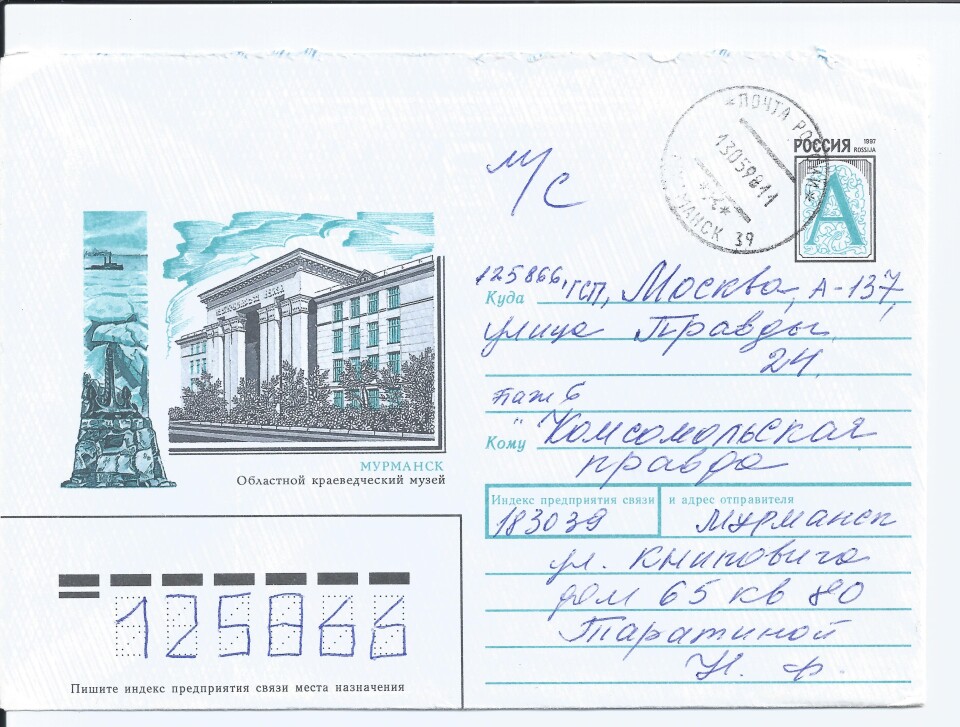 м/с
ПОЧТА РОССИИ
13059811
МАНСК 39
РОССИЯ 1997
ROSSIJA
А
125866, ГСП, Москва, А-137,
Куда
улица Правды
24,
"Комсомольская
Кому
правда
МУРМАНСК
Областной краеведческий музей
Индекс предприятия связи и адрес отправителя
183039 Мурманск
ул. Книповича
дом 65 кв 80
Таратиной
Н. Ф.
125866
Пишите индекс предприятия связи места назначения